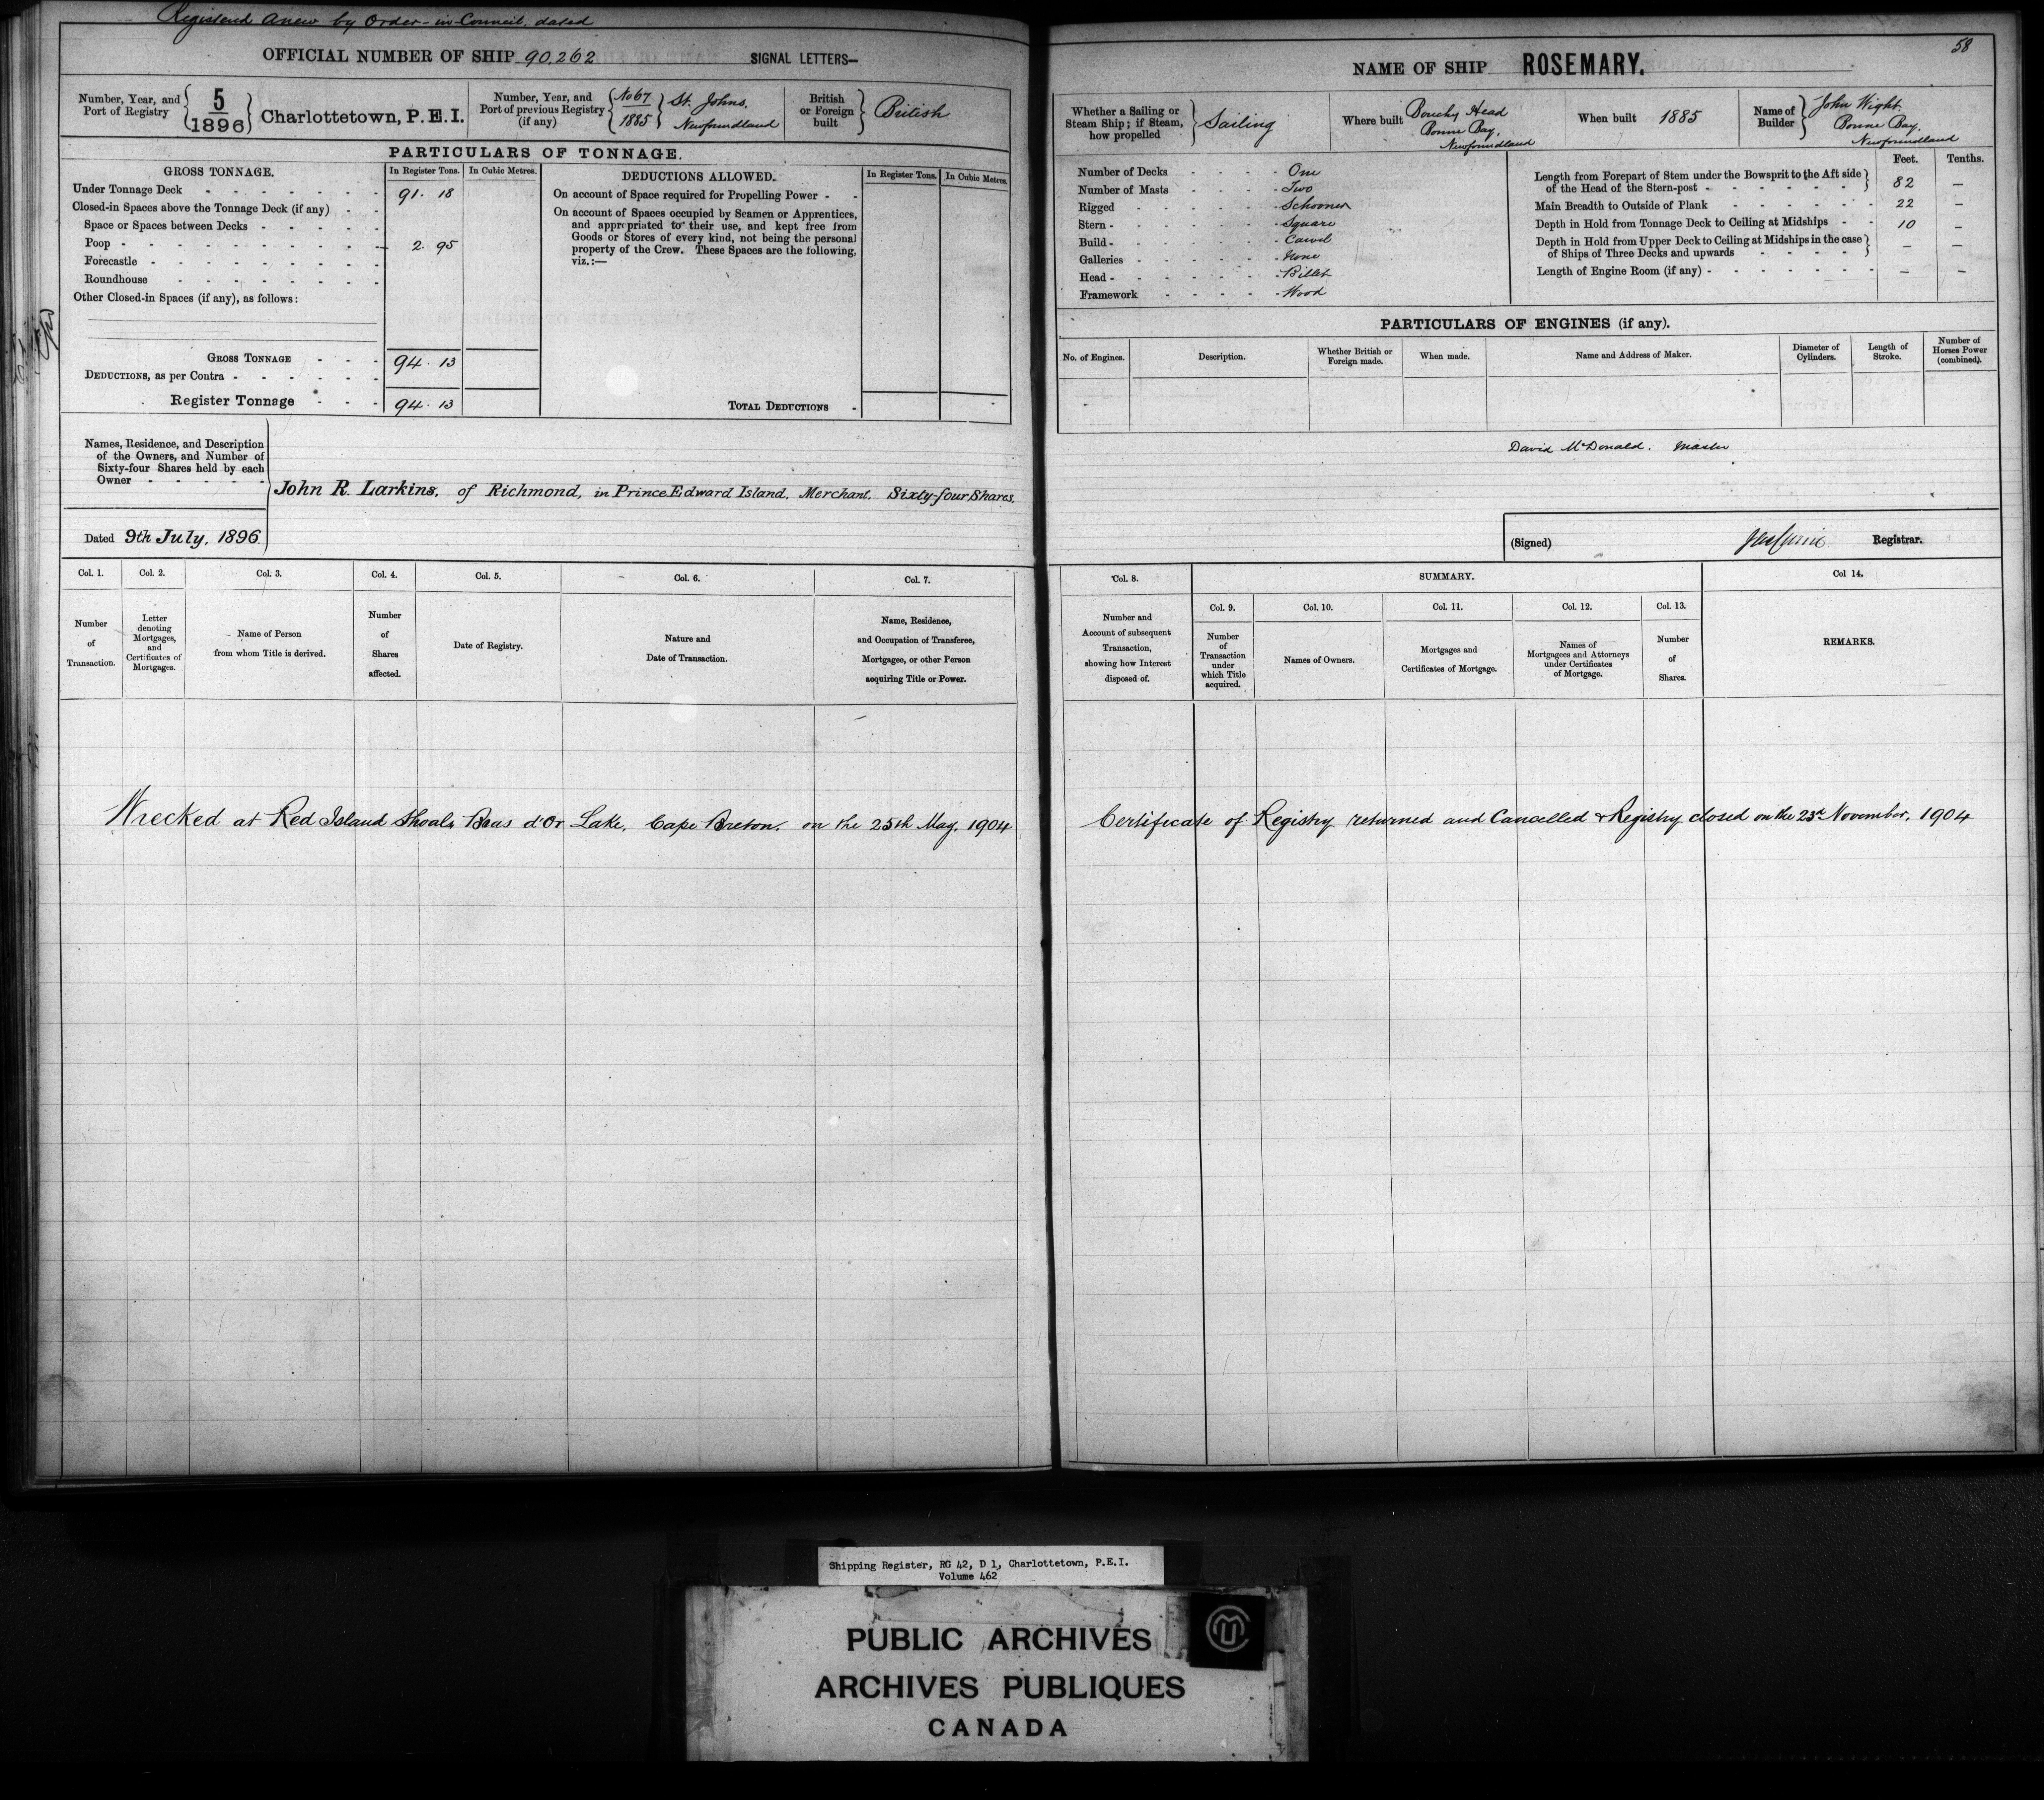 Registered anew by Order-in-Council, dated
OFFICIAL NUMBER OF SHIP 90,262 SIGNAL LETTERS—
Number, Year, and Port of Registry 5/1896 Charlottetown, P.E.I.
Number, Year, and Port of previous Registry (if any) No 67/1885 St. Johns, Newfoundland
British or Foreign built British
PARTICULARS OF TONNAGE.
GROSS TONNAGE. In Register Tons. In Cubic Metres.
Under Tonnage Deck 91.18
Closed-in Spaces above the Tonnage Deck (if any)
Space or Spaces between Decks
Poop 2.95
Forecastle
Roundhouse
Other Closed-in Spaces (if any), as follows:
GROSS TONNAGE 94.13
DEDUCTIONS, as per Contra
Register Tonnage 94.13
DEDUCTIONS ALLOWED. In Register Tons. In Cubic Metres.
On account of Space required for Propelling Power
On account of Spaces occupied by Seamen or Apprentices,
and appropriated to their use, and kept free from
Goods or Stores of every kind, not being the personal
property of the Crew. These Spaces are the following,
viz.:—
TOTAL DEDUCTIONS
Names, Residence, and Description
of the Owners, and Number of
Sixty-four Shares held by each
Owner
John R. Larkins, of Richmond, in Prince Edward Island, Merchant. Sixty-four Shares.
Dated 9th July, 1896.
Col. 1. Col. 2. Col. 3. Col. 4. Col. 5. Col. 6. Col. 7.
Number of Transaction.
Letter denoting Mortgages, and Certificates of Mortgages.
Name of Person from whom Title is derived.
Number of Shares affected.
Date of Registry.
Nature and Date of Transaction.
Name, Residence, and Occupation of Transferee, Mortgagee, or other Person acquiring Title or Power.
Wrecked at Red Island Shoals Bras d'Or Lake, Cape Breton. on the 25th May, 1904
58
NAME OF SHIP ROSEMARY.
Whether a Sailing or Steam Ship; if Steam, how propelled Sailing
Where built Head Bonne Bay, Newfoundland
When built 1885
Name of Builder John Wight, Bonne Bay, Newfoundland
Number of Decks One
Number of Masts Two
Rigged Schooner
Stern Square
Build Carvel
Galleries None
Head Billet
Framework Wood
Feet. Tenths.
Length from Forepart of Stem under the Bowsprit to the Aft side
of the Head of the Stern-post 82 —
Main Breadth to Outside of Plank 22 —
Depth in Hold from Tonnage Deck to Ceiling at Midships 10 —
Depth in Hold from Upper Deck to Ceiling at Midships in the case
of Ships of Three Decks and upwards — —
Length of Engine Room (if any) — —
PARTICULARS OF ENGINES (if any).
No. of Engines. Description. Whether British or Foreign made. When made. Name and Address of Maker. Diameter of Cylinders. Length of Stroke. Number of Horses Power (combined).
David McDonald. Master
(Signed) Registrar.
Col. 8. SUMMARY. Col 14.
Col. 9. Col. 10. Col. 11. Col. 12. Col. 13.
Number and Account of subsequent Transaction, showing how Interest disposed of.
Number of Transaction under which Title acquired.
Names of Owners.
Mortgages and Certificates of Mortgage.
Names of Mortgagees and Attorneys under Certificates of Mortgage.
Number of Shares.
REMARKS.
Certificate of Registry returned and Cancelled & Registry closed on the 23rd November, 1904
Shipping Register, RG 42, D 1, Charlottetown, P.E.I.
Volume 462
PUBLIC ARCHIVES
ARCHIVES PUBLIQUES
CANADA